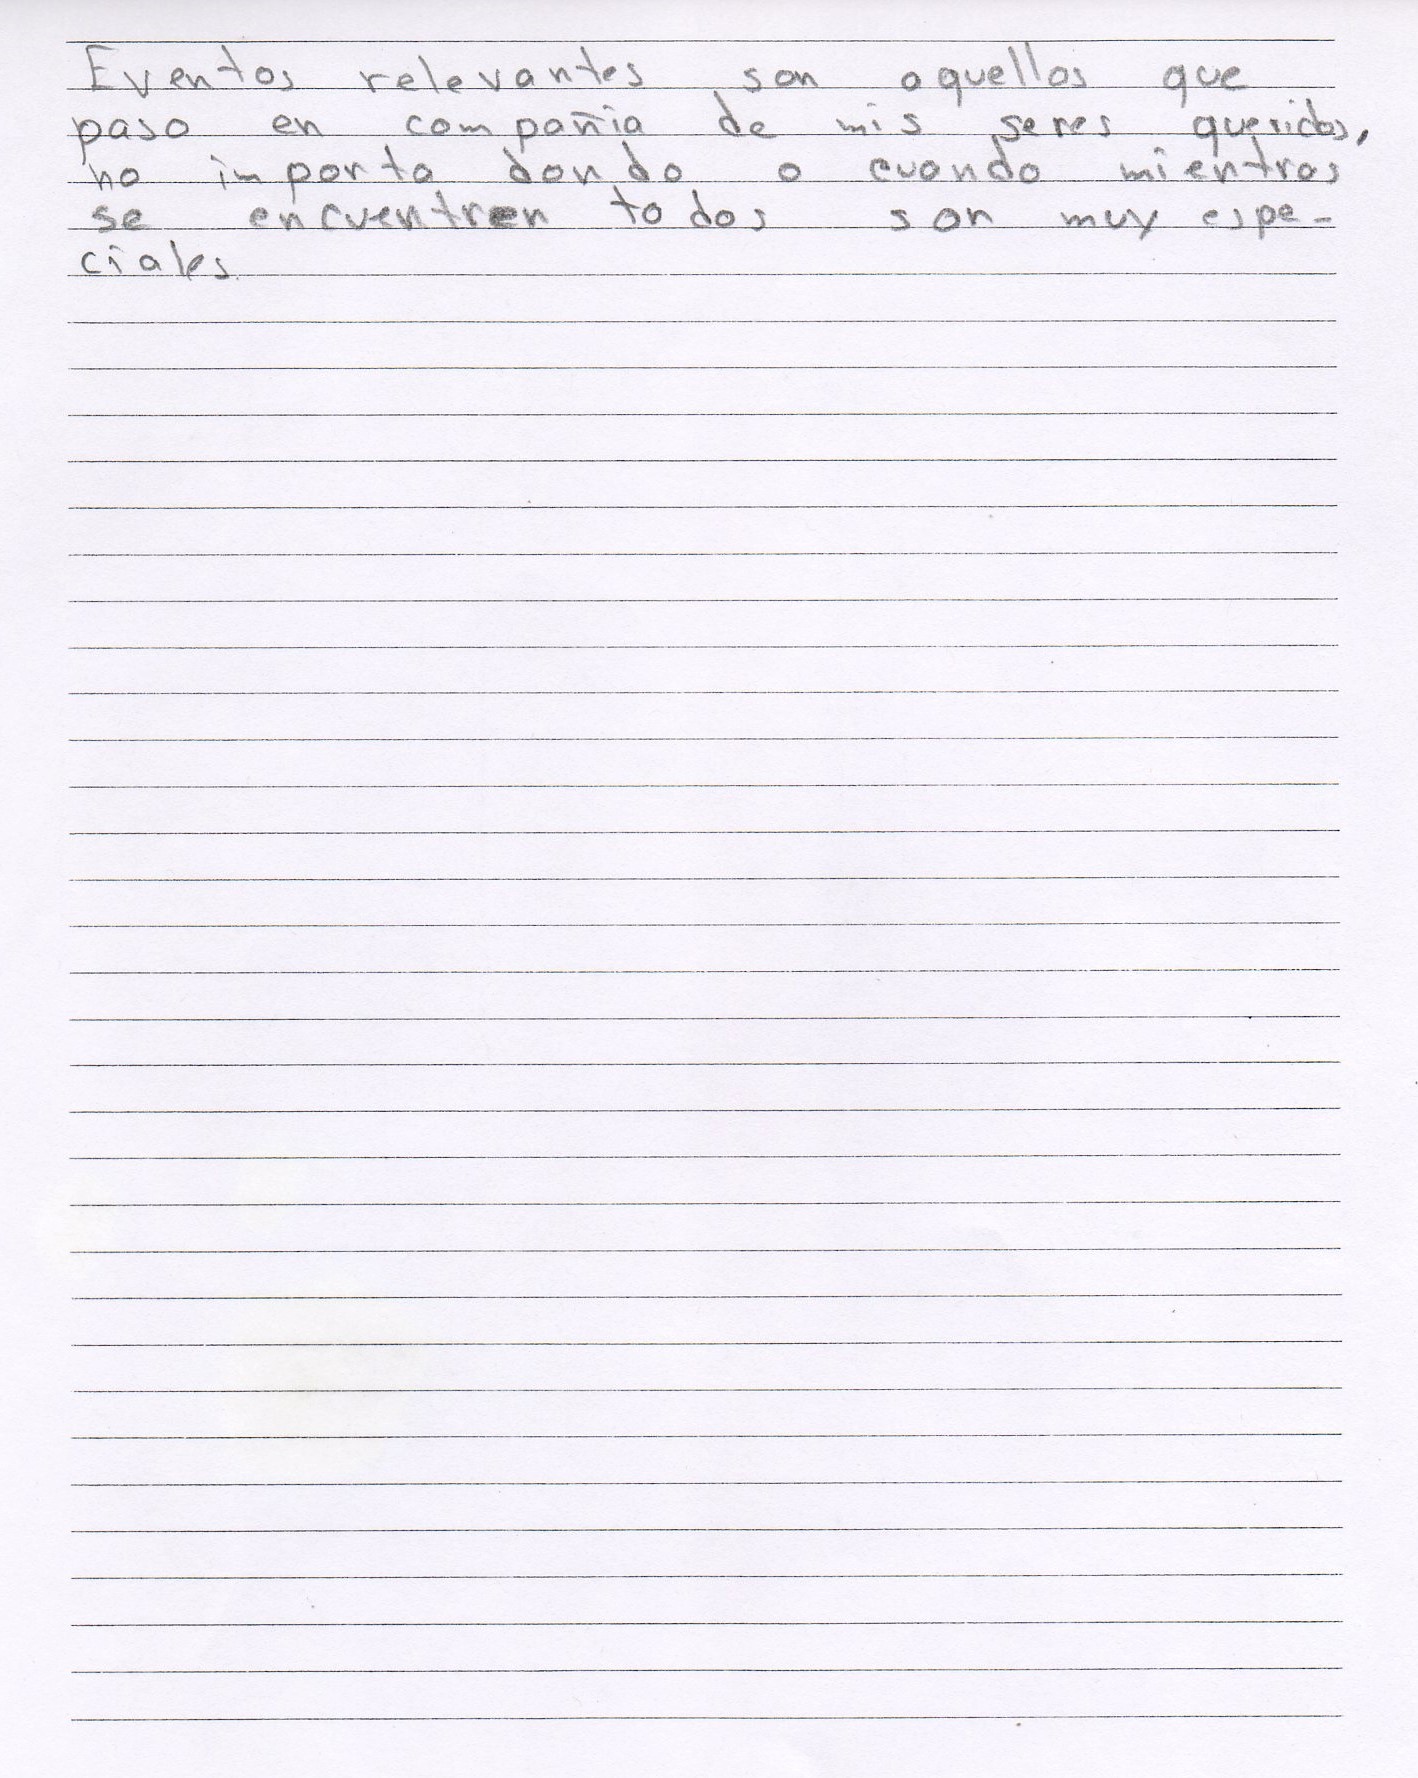 Eventos relevantes son aquellos que
paso en compañia de mis seres queridos,
no importa dondo o cuando mientras
se encuentren todos son muy espe-
ciales.